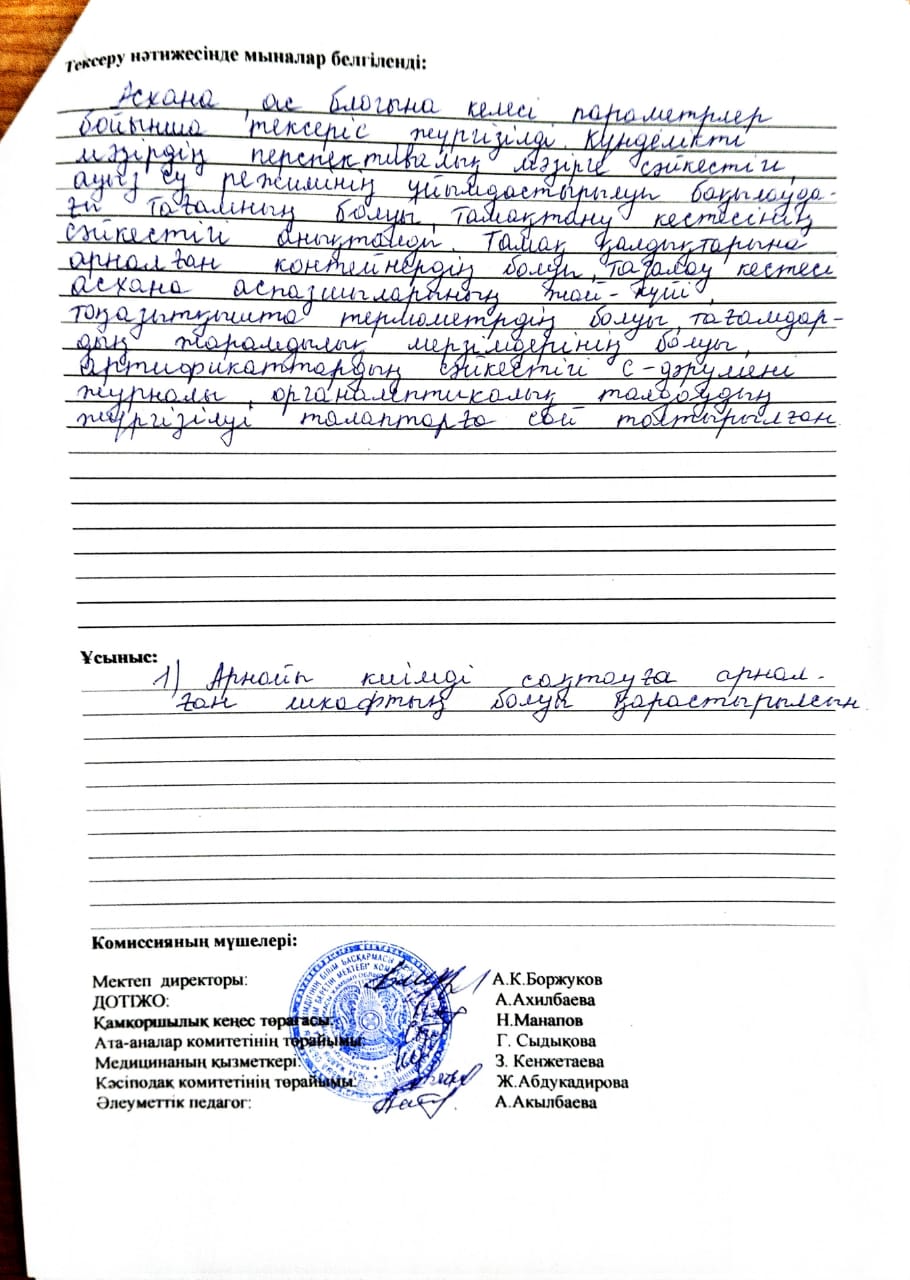 Тексеру нәтижесінде мыналар белгіленді:
Асхана ас блогына келесі параметрлер
бойынша тексеріс жүргізілді. Күнделікті
мәзірдің перспективалық мәзірге сәйкестігі,
ауыз су режимінің ұйымдастырылуы бақылауда-
ғы тағамның болуы, тамақтану кестесінің
сәйкестігі анықталды. Тамақ қалдықтарына
арналған контейнердің болуы, тазалау кестесі
асхана аспазшыларының жай-күйі,
тоңазытқышта термометрдің болуы, тағамдар-
дың жарамдылық мерзімдерінің болуы,
сертификаттардың сәйкестігі С-дәрумені
журналы, органалептикалық талдаудың
жүргізілуі талаптарға сай толтырылған.
Ұсыныс:
1) Арнайы киімді сақтауға арнал-
ған шкафтың болуы қарастырылсын
Комиссияның мүшелері:
Мектеп директоры: А.К.Боржуков
ДОТІЖО: А.Ахилбаева
Қамқоршылық кеңес төрағасы: Н.Манапов
Ата-аналар комитетінің төрайымы: Г. Сыдықова
Медицинаның қызметкері: З. Кенжетаева
Кәсіподақ комитетінің төрайымы: Ж.Абдукадирова
Әлеуметтік педагог: А.Акылбаева